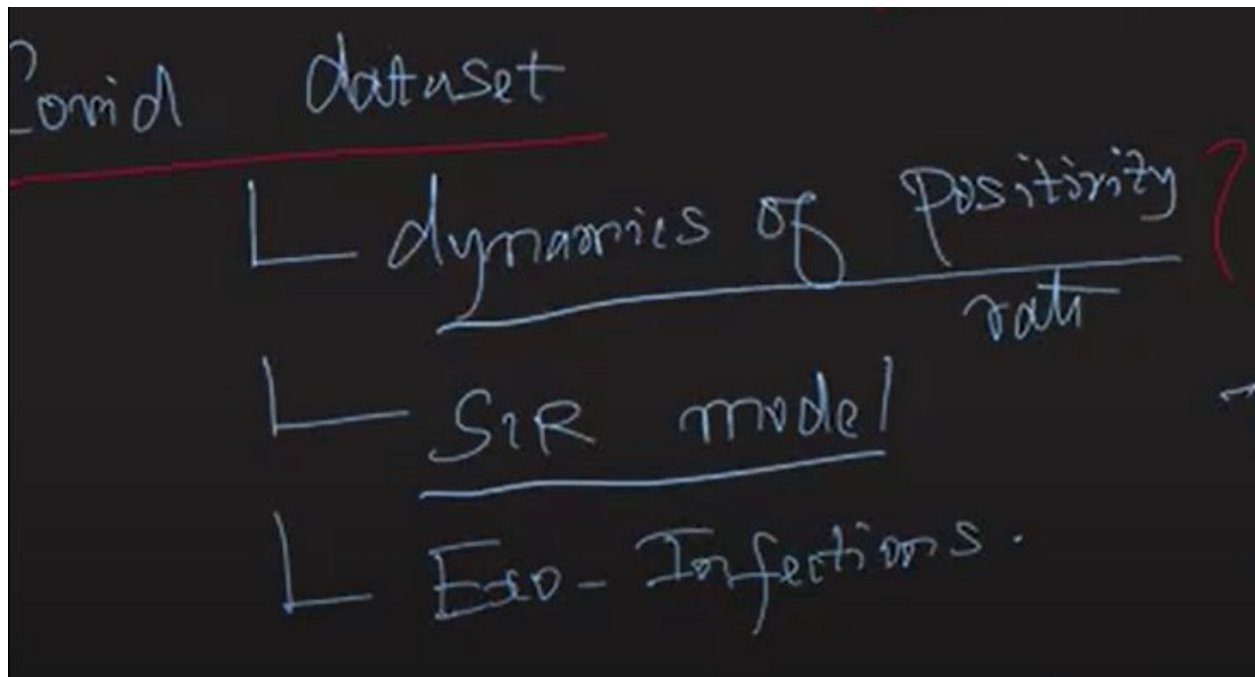 Covid dataset
dynamics of positivity
rate
SIR model
Exo-Infections.